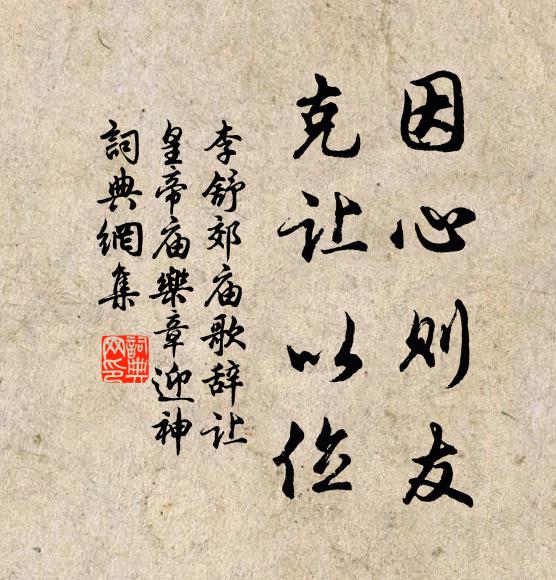 因心则友
克让以俭
李舒郊庙歌辞让
皇帝庙樂章迎神
詞典網集
詞典
网印